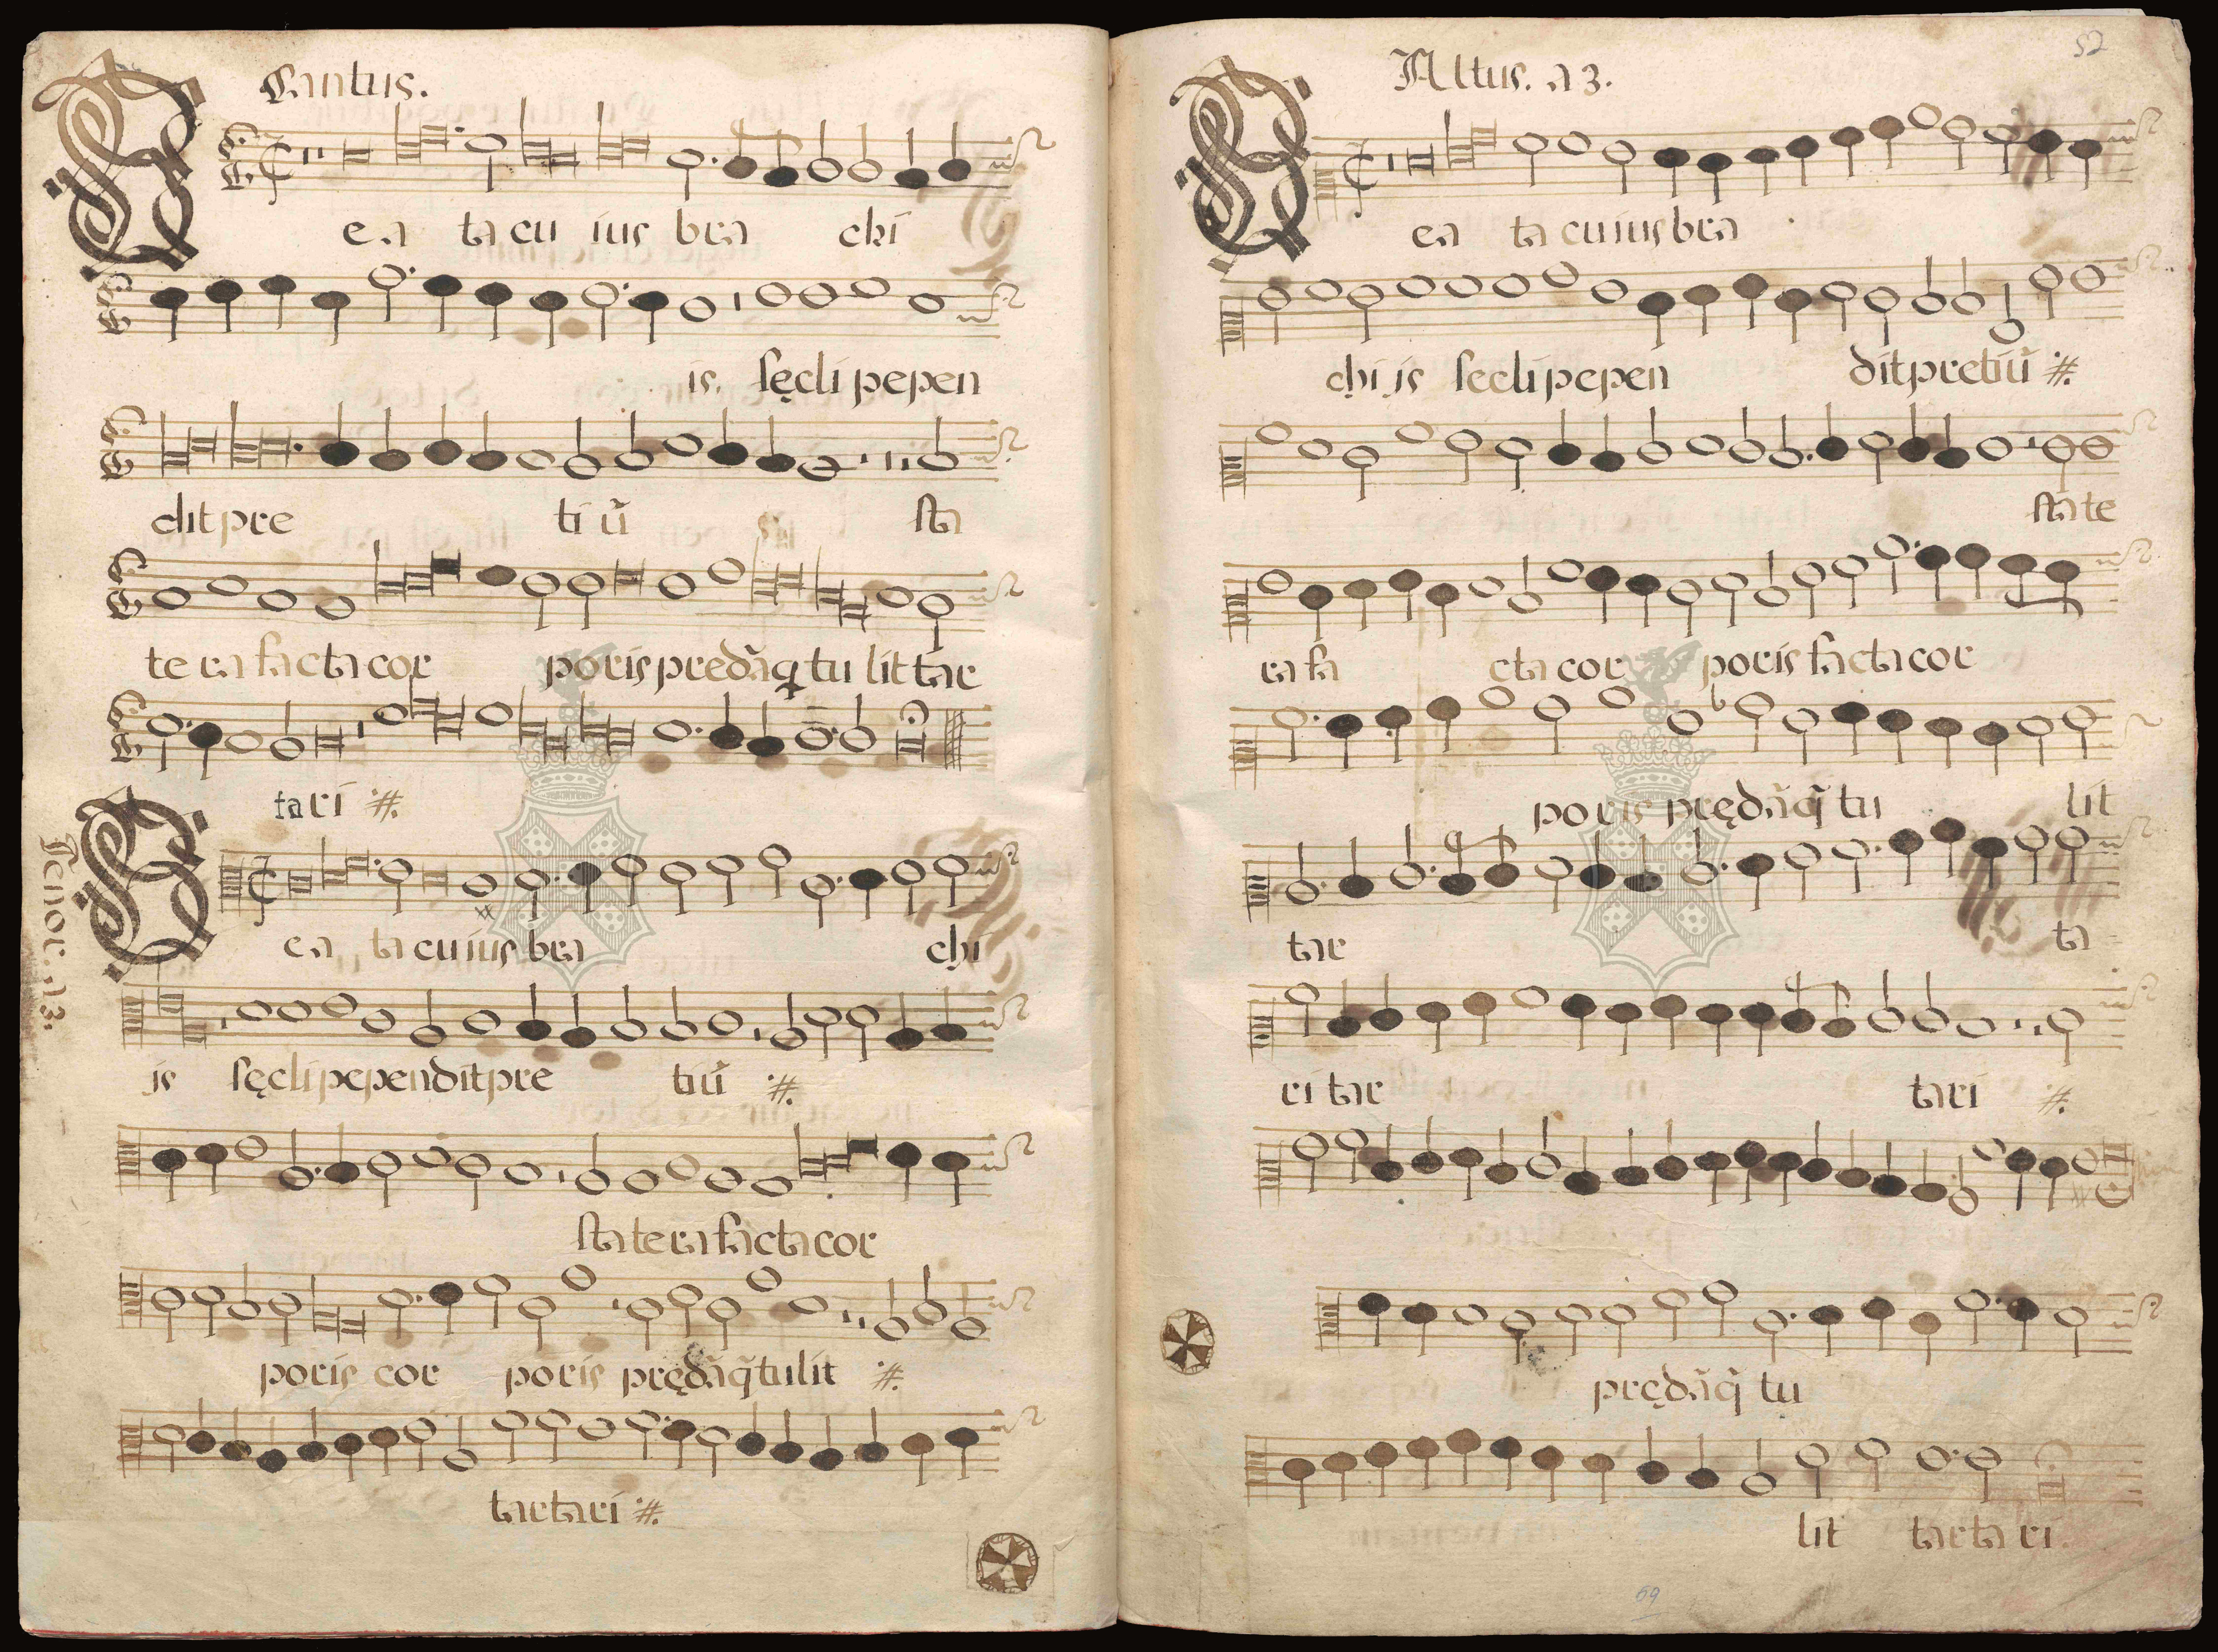 Cantus.
B ea ta cu ius bra chi
is. sęcli pepen
dit pre ti ũ sta
te ra facta cor poris predãq tu lit tar
tari :#.
Tenor. a3.
B ea ta cuius bra chi
is sęcli pependit pre tiũ :#.
statera facta cor
poris cor poris prędãq̃ tulit :#.
tartari :#.
52
Altus. a3.
B ea ta cuius bra
chi is secli pepen dit pretiũ :#.
state
ra fa cta cor poris facta cor
poris prędãq̃ tu lit
tar ta
ri tar tari :#.
prędãq̃ tu
lit tarta ri
69